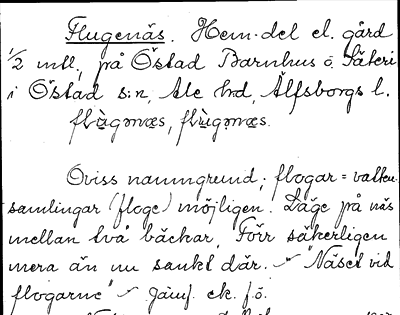 Flugenäs. Hem.del el. gård
1/2 mtl, på Östad Barnhus o. Säteri
i Östad s:n, Ale hd, Älfsborgs l.
Oviss namngrund; flogar = vatten-
samlingar (floge) möjligen. Läge på näs
mellan två bäckar. Förr säkerligen
mera än nu sankt där. "Näset vid
flogarne" Jämf. ek. f.ö.